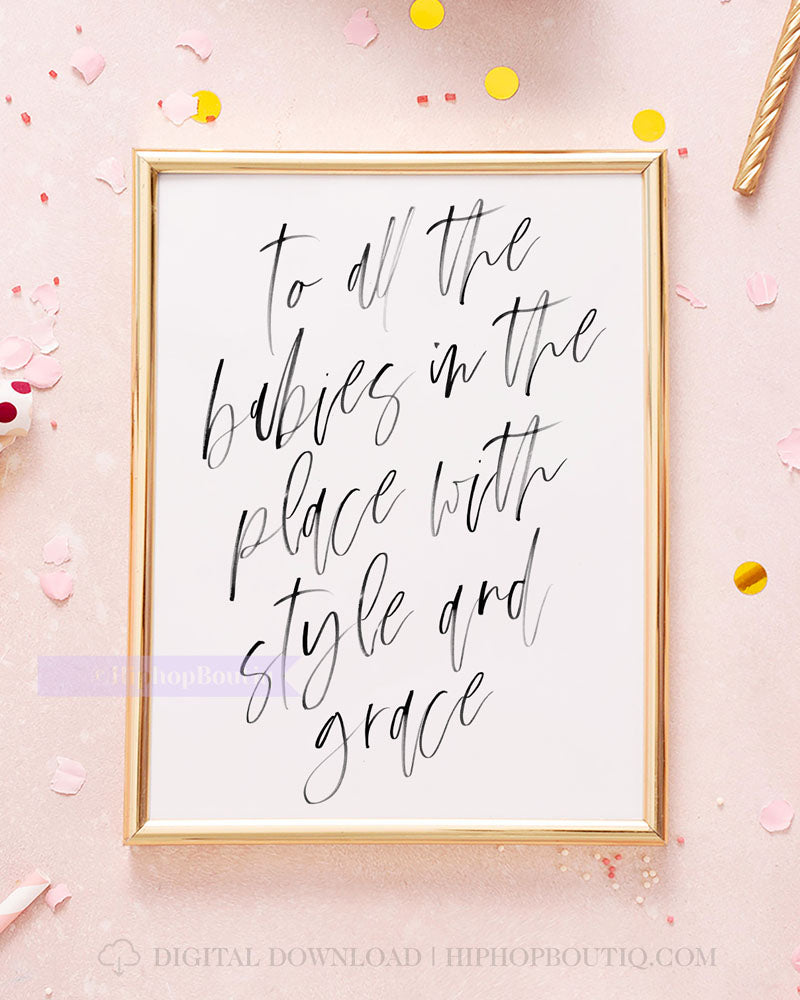 to all the
babies in the
place with
style and
grace
©HiphopBoutiq
DIGITAL DOWNLOAD | HIPHOPBOUTIQ.COM